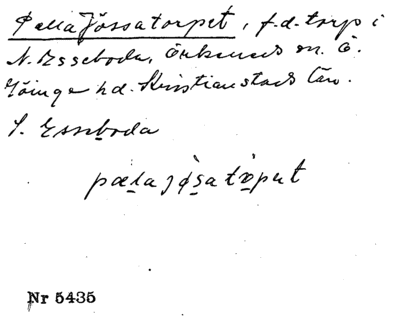 Pella Jössatorpet, f.d. torp i
N. Esseboda, Örkeneds sn. Ö.
Göinge hd. Kristianstads län.
S. Esseboda
pælajösatɔput
Nr 5435